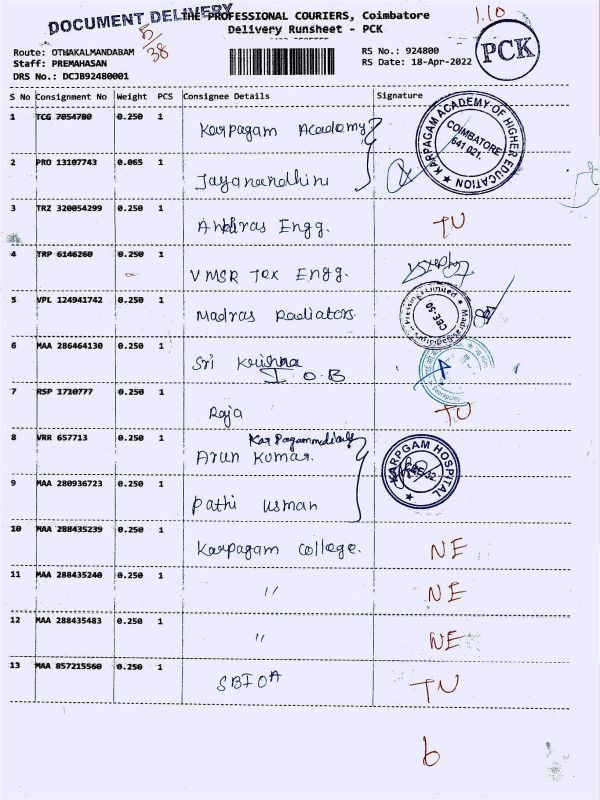 DOCUMENT DELIVERY
THE PROFESSIONAL COURIERS, Coimbatore
1.10
Delivery Runsheet - PCK
PCK
5/38
Route: OTHAKALMANDABAM
RS No.: 924800
Staff: PREMAHASAN
RS Date: 18-Apr-2022
DRS No.: DCJB92480001
S No Consignment No Weight PCS Consignee Details Signature
1 TCG 7054700 0.250 1 Karpagam Academy
KARPAGAM ACADEMY OF HIGHER EDUCATION
COIMBATORE
641 021.
2 PRO 13107743 0.065 1 Jayanandhini
3 TRZ 320054299 0.250 1 Engg. TU
4 TRP 6146260 0.250 1 VMSR Tex Engg.
5 VPL 124941742 0.250 1 Madras Radiators
CBE-50
6 MAA 286464130 0.250 1 Sri Krishna
I O B
7 RSP 1710777 0.250 1 Raja TU
8 VRR 657713 0.250 1 Arun Kumar.
KARPGAM HOSPITAL
9 MAA 280936723 0.250 1 Pathi Usman
10 MAA 288435239 0.250 1 Karpagam College. NE
11 MAA 288435240 0.250 1 " NE
12 MAA 288435483 0.250 1 " NE
13 MAA 857215560 0.250 1 SBIOA TU
6